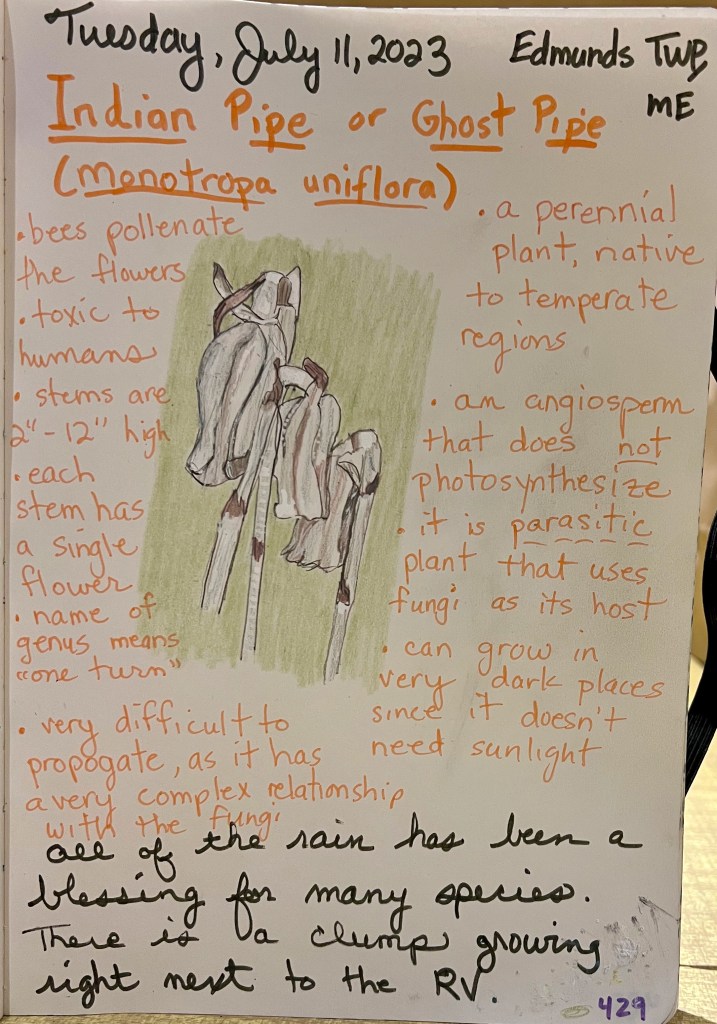 Tuesday, July 11, 2023
Edmunds Twp,
ME
Indian Pipe or Ghost Pipe
(monotropa uniflora)
• bees pollenate
the flowers
• toxic to
humans
• stems are
2" - 12" high
• each
stem has
a single
flower
• name of
genus means
"one turn"
• very difficult to
propogate, as it has
a very complex relationship
with the fungi
• a perennial
plant, native
to temperate
regions
• an angiosperm
that does not
photosynthesize
• it is parasitic
plant that uses
fungi as its host
• can grow in
very dark places
since it doesn't
need sunlight
all of the rain has been a
blessing for many species.
There is a clump growing
right next to the RV.
429